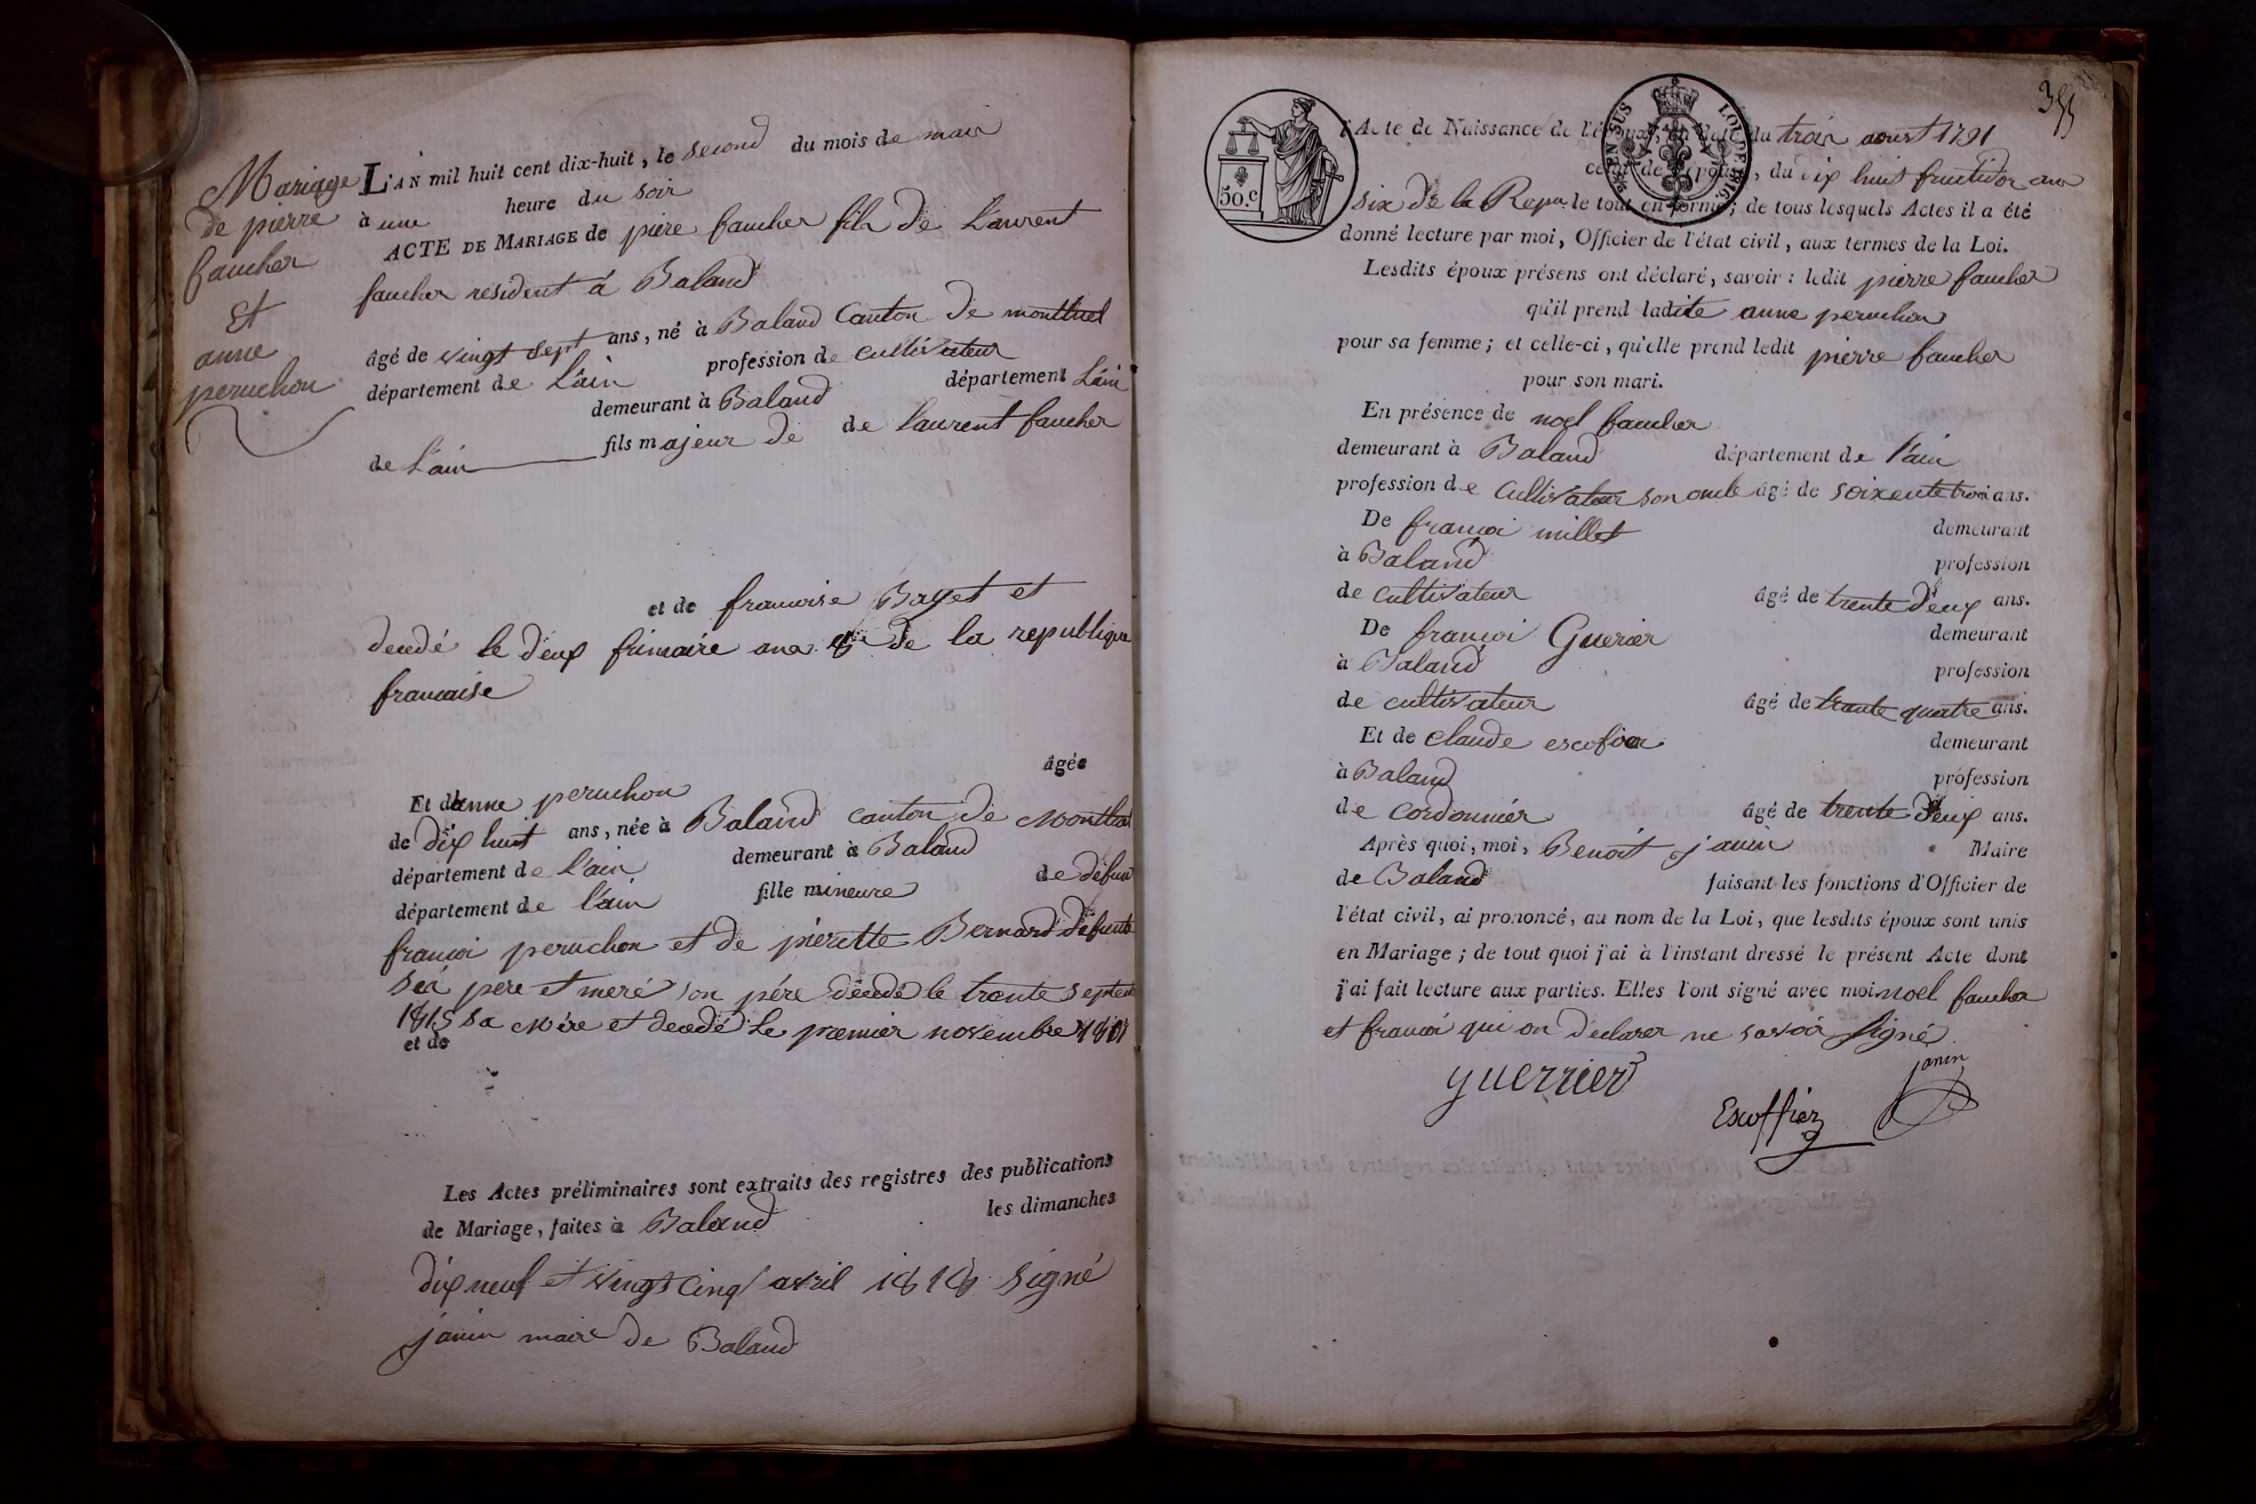 Mariage
de pierre
faucher
Et
anne
peruchon
L'AN mil huit cent dix-huit, le second du mois de mai
à une heure du soir
ACTE DE MARIAGE de piere faucher fils de Laurent
faucher résident à Baland
âgé de vingt sept ans, né à Baland Canton de montluel
département de L'ain profession de cultivateur
demeurant à Baland département L'ain
de L'ain fils majeur de de laurent faucher
et de francoise Bayet et
decedé le deux frimaire ana de la republique
francaise
Et d'anne peruchon âgée
de dix huit ans, née à Baland canton de Montluel
département de l'ain demeurant à Baland
département de l'ain fille mineure de defunt
françoi peruchon et de pierette Bernard défunte
Sea pere et meré son pére décédé le trante septem
1815 sa Mére et decedé Le premier novembre
et de
Les Actes préliminaires sont extraits des registres des publications
de Mariage, faites à Baland les dimanches
dix neuf et vingt cinq avril 1818 signé
janin maire de Baland
35
50.c
EN SUS LOI DE 1816
l'Acte de Naissance de l'époux, en date du trois aoust 1791
celui de l'épouse, du dix huit fructidor an
six de la Repu. le tout en forme; de tous lesquels Actes il a été
donné lecture par moi, Officier de l'état civil, aux termes de la Loi.
Lesdits époux présens ont déclaré, savoir: ledit pierre faucher
qu'il prend ladite anne peruchon
pour sa femme; et celle-ci, qu'elle prend ledit pierre faucher
pour son mari.
En présence de noel faucher
demeurant à Baland département de l'ain
profession de Cultivateur son oncle âgé de soixente troi ans.
De françoi millet demeurant
à Baland profession
de cultivateur âgé de trente deux ans.
De françoi Guerier demeurant
à Baland profession
de cultivateur âgé de trante quatre ans.
Et de claude escofier demeurant
à Baland profession
de Cordonniér âgé de trente deux ans.
Après quoi, moi, Benoit janin Maire
de Baland faisant les fonctions d'Officier de
l'état civil, ai prononcé, au nom de la Loi, que lesdits époux sont unis
en Mariage; de tout quoi j'ai à l'instant dressé le présent Acte dont
j'ai fait lecture aux parties. Elles l'ont signé avec moi noel faucher
et françoi qui on declarer ne savoir signé
guerrier
janin
Escoffier